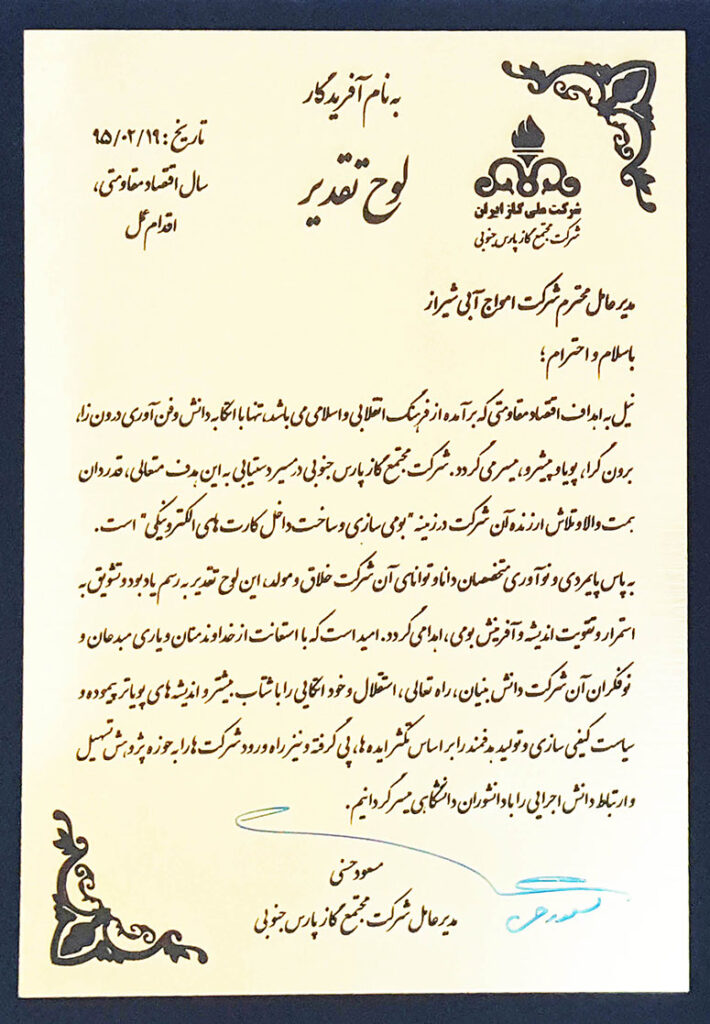 به نام آفریدگار
تاریخ: ۹۵/۰۲/۱۹
لوح تقدیر
سال اقتصاد مقاومتی،
اقدام و عمل
شرکت ملی گاز ایران
شرکت مجتمع گاز پارس جنوبی
مدیرعامل محترم شرکت امواج آبی شیراز
با سلام و احترام؛
نیل به اهداف اقتصاد مقاومتی که برآمده از فرهنگ انقلابی و اسلامی می باشد، تنها با اتکا به دانش و فن آوری درون زا،
برون گرا، پویا و پیشرو، میسر می گردد. شرکت مجتمع گاز پارس جنوبی در مسیر دستیابی به این هدف متعالی، قدردان
همت والا و تلاش ارزنده آن شرکت در زمینه "بومی سازی و ساخت داخل کارت های الکترونیکی" است.
به پاس پایمردی و نوآوری متخصصان دانا و توانای آن شرکت خلاق و مولد، این لوح تقدیر به رسم یادبود و تشویق به
استمرار و تقویت اندیشه و آفرینش بومی، اهدا می گردد. امید است که با استعانت از خداوند منان و یاری مبدعان و
نوفکران آن شرکت دانش بنیان، راه تعالی، استقلال و خود اتکایی را با شتاب بیشتر و اندیشه های پویاتر پیموده و
سیاست کیفی سازی و تولید هدفمند را بر اساس تکثر ایده ها، پی گرفته و نیز راه ورود شرکت ها را به حوزه پژوهش تسهیل
و ارتباط دانش اجرایی را با دانشوران دانشگاهی میسر گردانیم.
مسعود حسنی
مدیرعامل شرکت مجتمع گاز پارس جنوبی